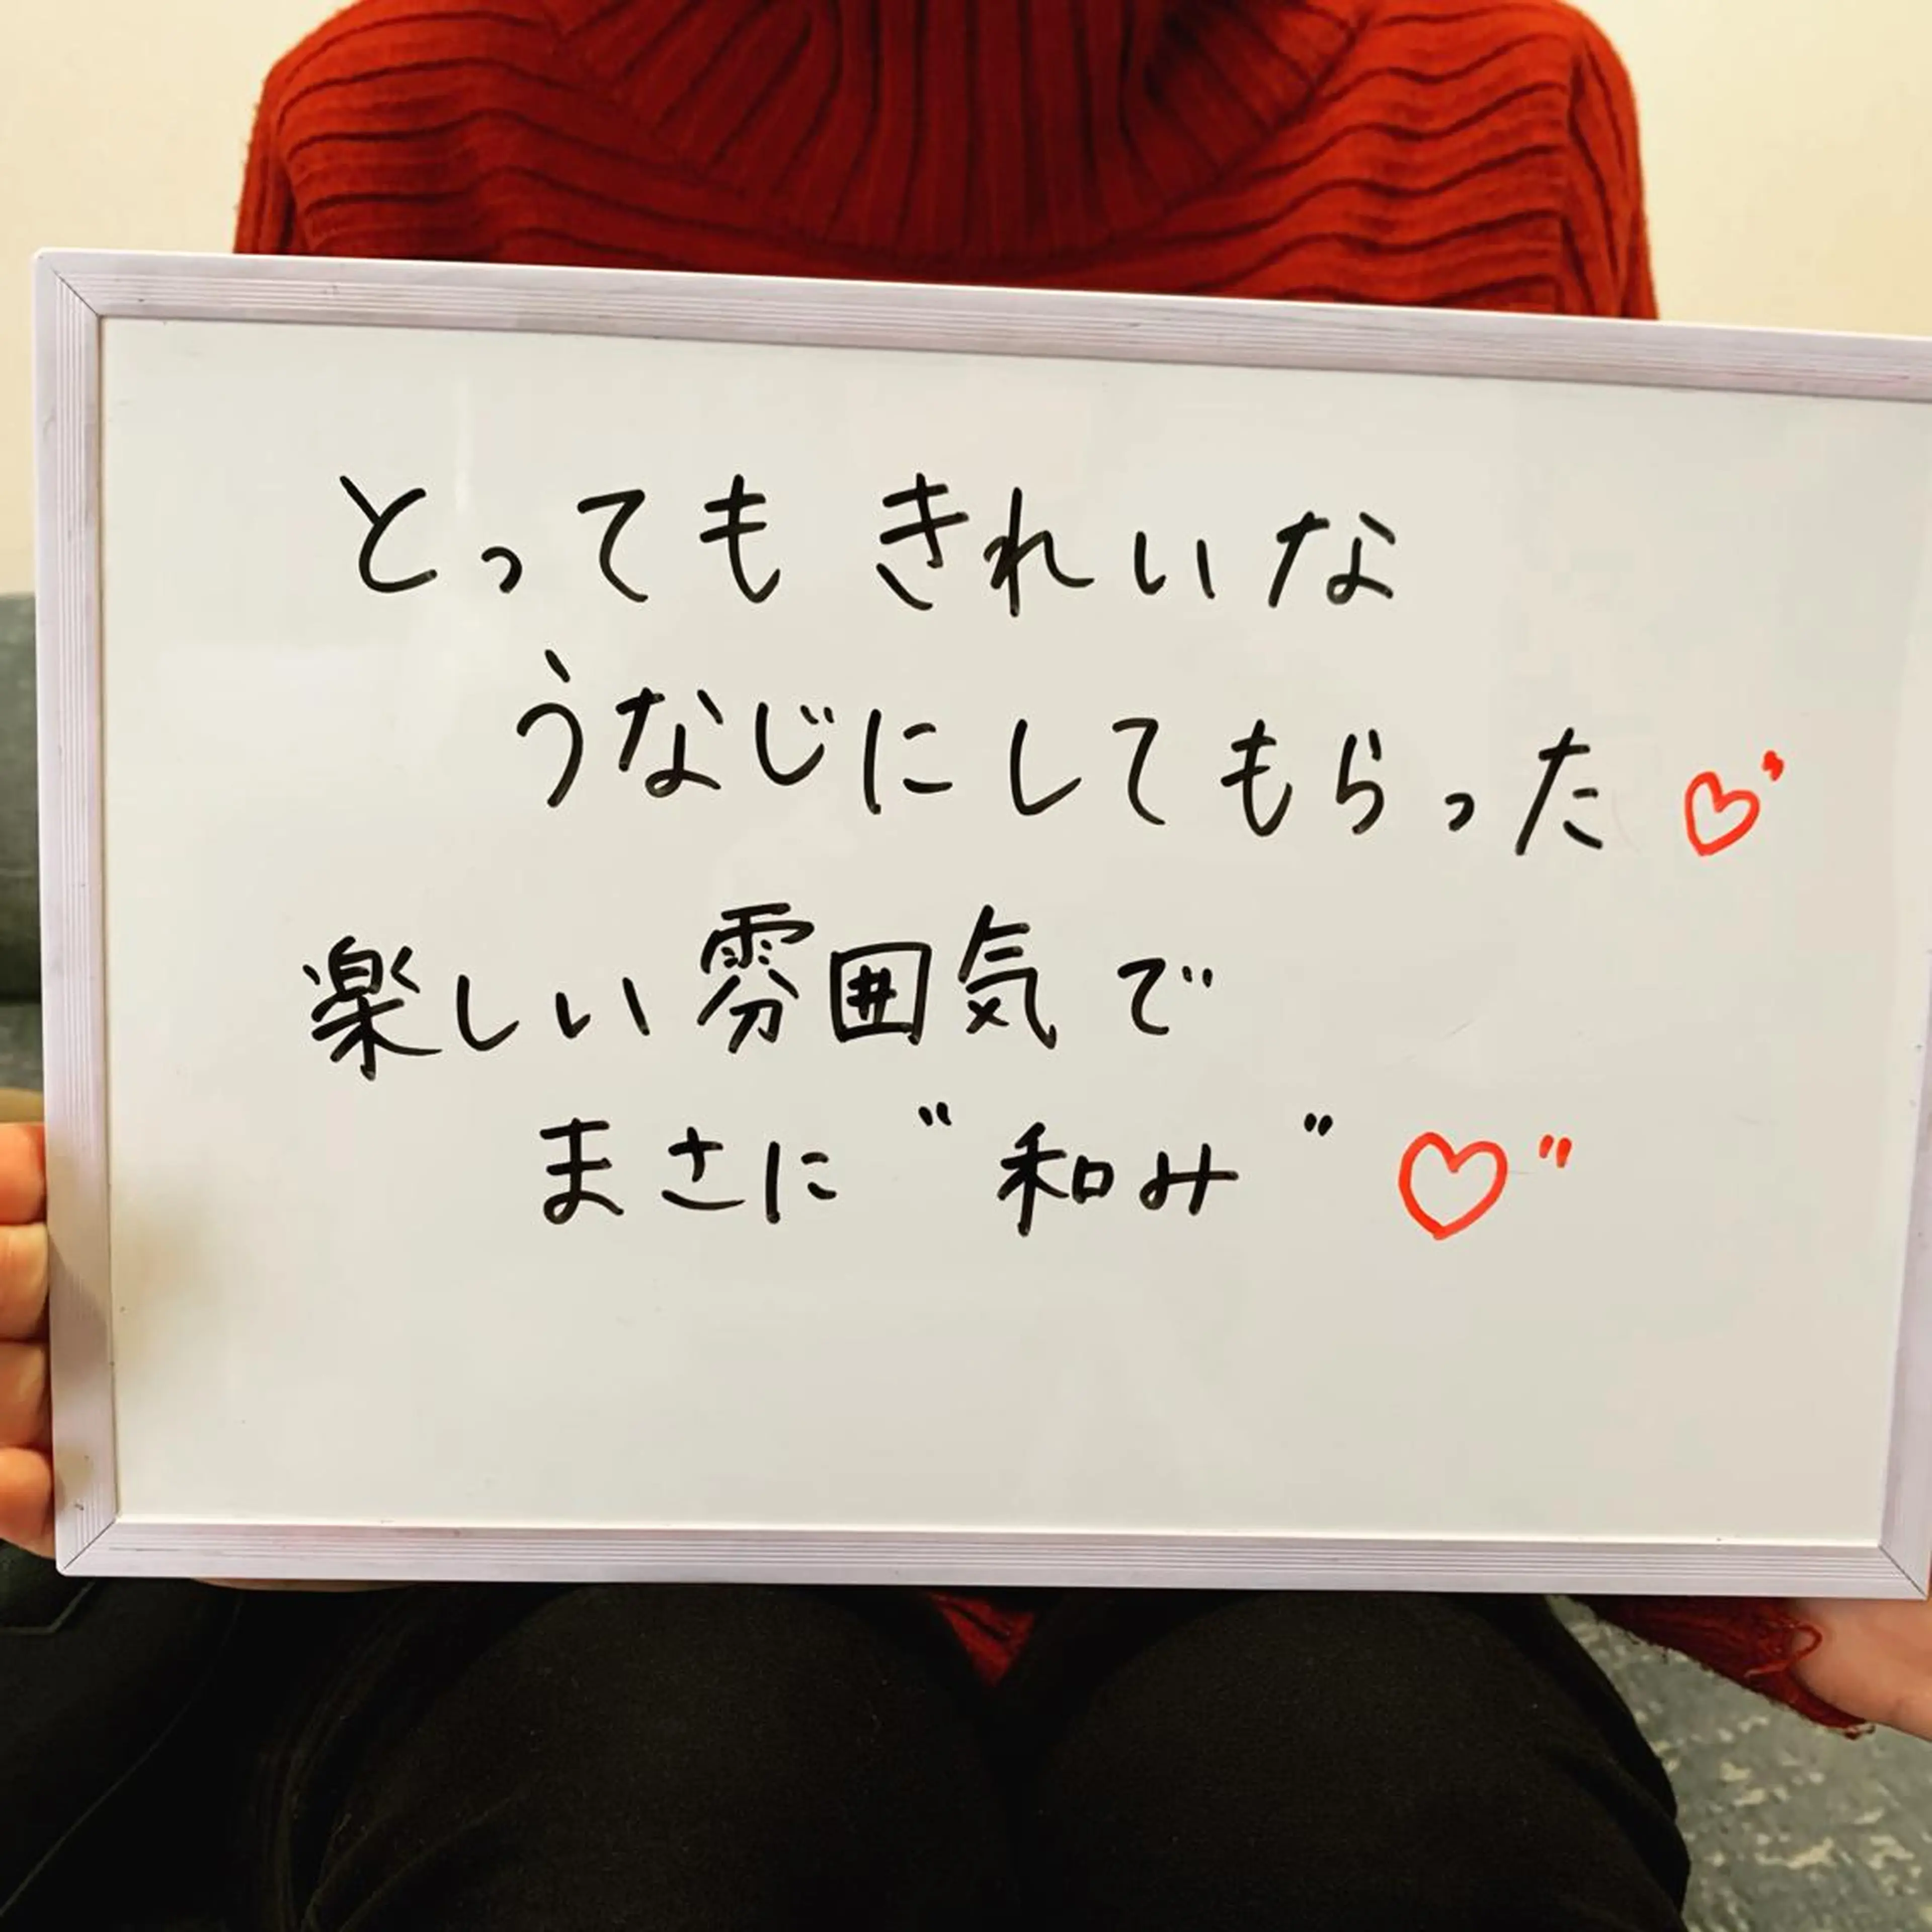 とっても きれいな
うなじにしてもらった♡
楽しい雰囲気で
まさに"和み"♡